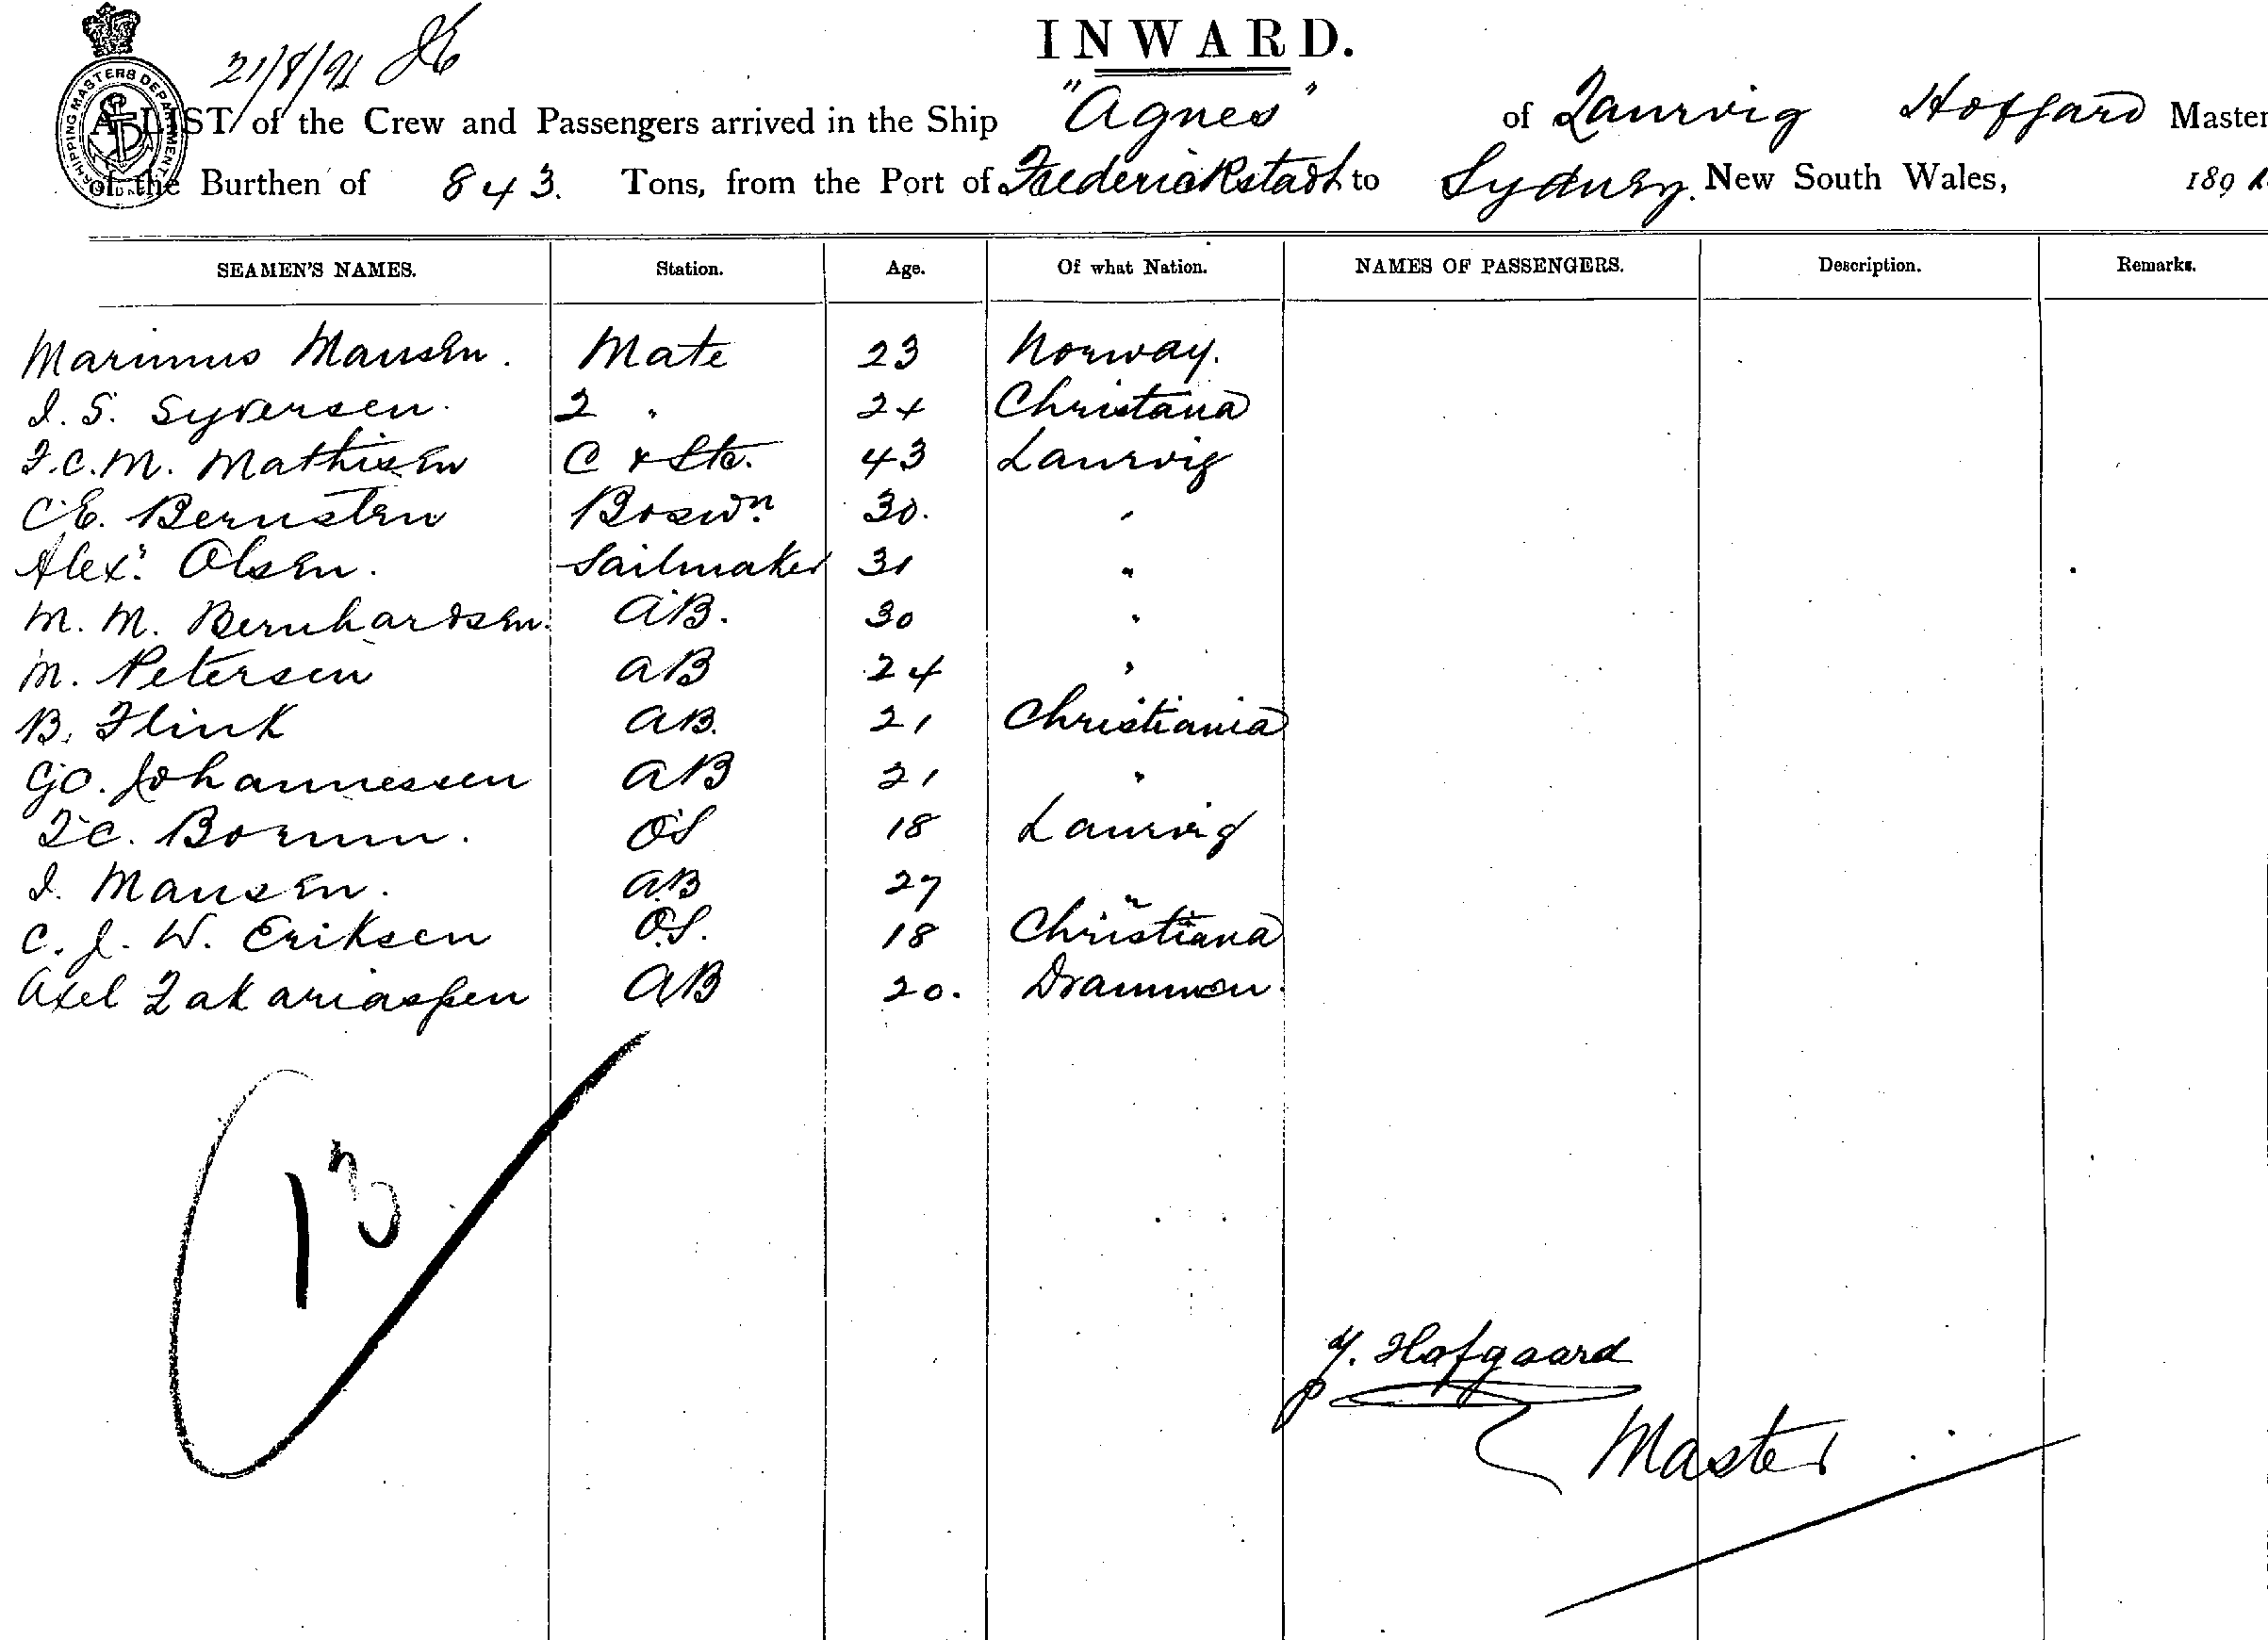 INWARD.
21/8/91
SHIPPING MASTERS DEPARTMENT
A LIST of the Crew and Passengers arrived in the Ship "Agnes" of Laurvig Hoffgard Master
of the Burthen of 843. Tons, from the Port of Frederickstadt to Sydney. New South Wales, 189
SEAMEN'S NAMES. Station. Age. Of what Nation. NAMES OF PASSENGERS. Description. Remarks.
Marinus Mausen. Mate 23 Norway.
I. S. Syversen. 2 " 24 Christana
F.C.M. Mathisen C & Std. 43 Laurvig
C.E. Bernsten Boswn. 30. "
Alexr. Olsen. Sailmaker 31 "
M. M. Bernhardsen. AB. 30 "
M. Petersen AB 24 "
B. Flink AB. 21 Christiania
Go. Johannessen AB 21 "
I C. Borunn. OS 18 Laurvig
I. Mausen. AB 27 "
C. J. W. Eriksen O.S. 18 Christiana
Axel Zakariassen AB 20. Drammen.
13
Y. Hofgaard
Master